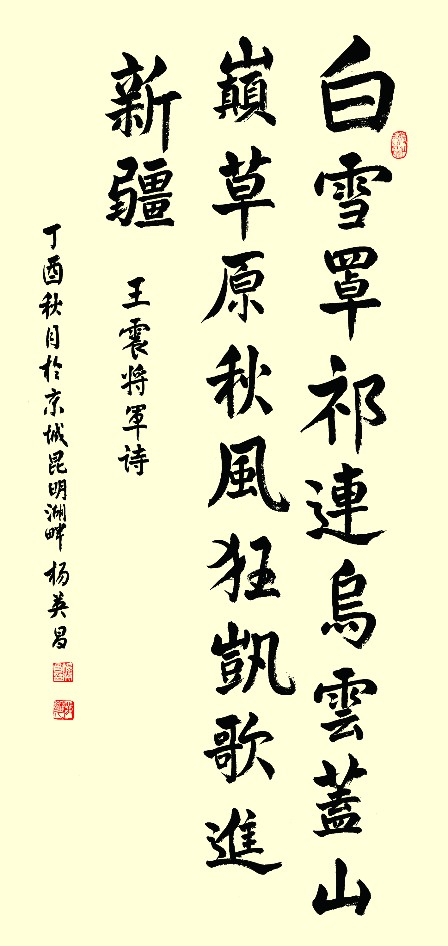 白雪罩祁連烏雲蓋山
巔草原秋風狂凱歌進
新疆
王震将軍诗
丁酉秋月於京城昆明湖畔 杨英昌